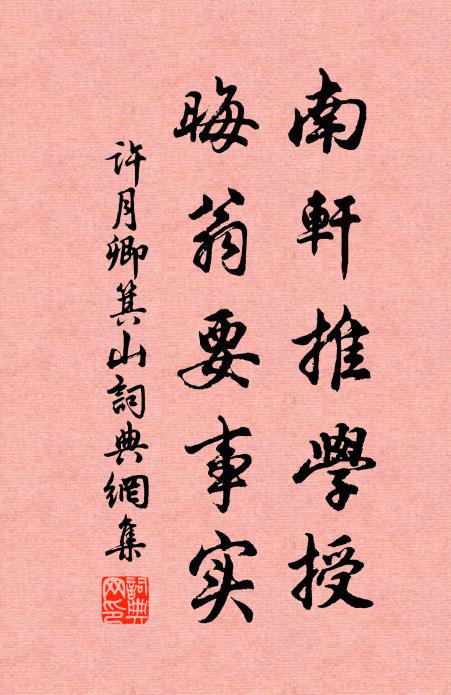 南軒推學授
晦翁要事实
許月卿箕山詞典網集
詞典网印